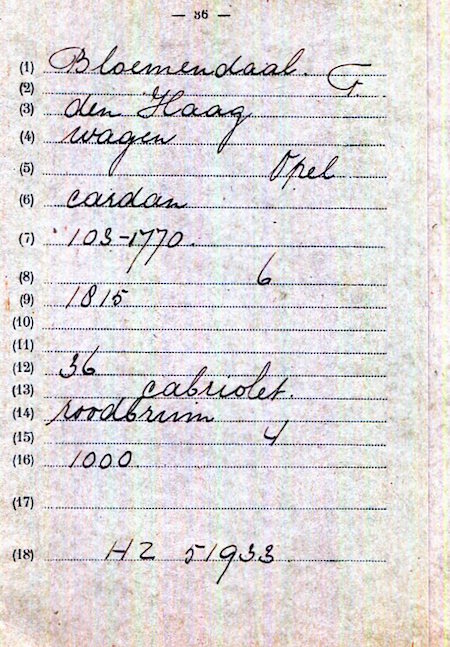 — 36 —
(1) Bloemendaal. F.
(2)
(3) den Haag
(4) wagen
(5) Opel
(6) cardan
(7) 103-1770.
(8) 6
(9) 1815
(10)
(11)
(12) 36
(13) cabriolet.
(14) roodbruin
(15) 4
(16) 1000
(17)
(18) HZ 51933